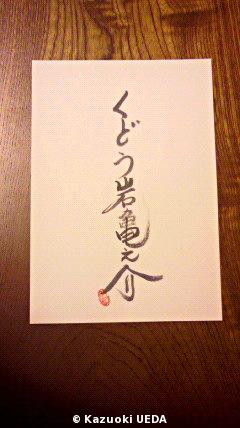 くどう岩亀之介
© Kazuoki UEDA